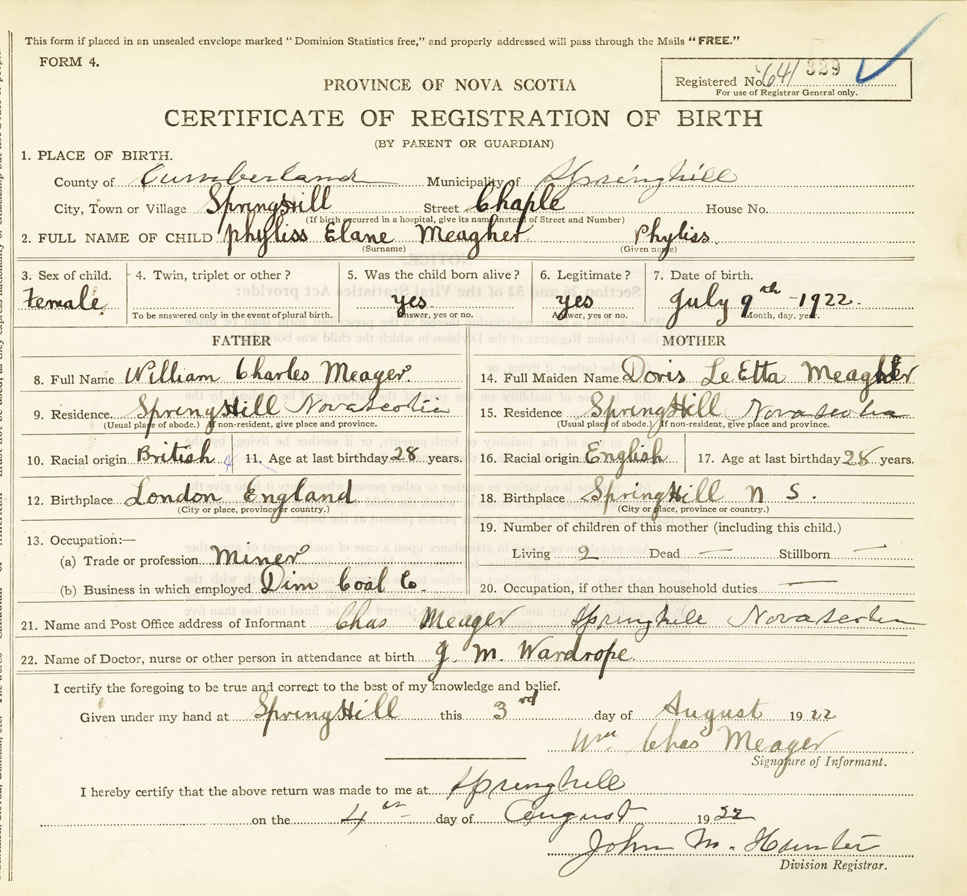 This form if placed in an unsealed envelope marked "Dominion Statistics free," and properly addressed will pass through the Mails "FREE."
FORM 4.
Registered No. 641 329
For use of Registrar General only.
PROVINCE OF NOVA SCOTIA
CERTIFICATE OF REGISTRATION OF BIRTH
(BY PARENT OR GUARDIAN)
1. PLACE OF BIRTH.
County of Cumberland Municipality of Springhill
City, Town or Village SpringHill Street Chaple House No.
(If birth occurred in a hospital, give its name instead of Street and Number)
2. FULL NAME OF CHILD Phyliss Elane Meagher Phyliss.
(Surname) (Given name)
3. Sex of child. 4. Twin, triplet or other? 5. Was the child born alive? 6. Legitimate? 7. Date of birth.
Female yes yes July 9th - 1922.
To be answered only in the event of plural birth. Answer, yes or no. Answer, yes or no. Month, day, year.
FATHER MOTHER
8. Full Name William Charles Meager. 14. Full Maiden Name Doris LeEtta Meagher
9. Residence. SpringHill Nova scotia 15. Residence SpringHill Nova scotia
(Usual place of abode.) If non-resident, give place and province. (Usual place of abode.) If non-resident, give place and province.
10. Racial origin British 11. Age at last birthday 28 years. 16. Racial origin English 17. Age at last birthday 28 years.
12. Birthplace London England 18. Birthplace SpringHill N S.
(City or place, province or country.) (City or place, province or country.)
13. Occupation:— 19. Number of children of this mother (including this child.)
(a) Trade or profession Miner Living 2 Dead — Stillborn —
(b) Business in which employed Dim Coal Co. 20. Occupation, if other than household duties —
21. Name and Post Office address of Informant Chas Meager Springhill Nova scotia
22. Name of Doctor, nurse or other person in attendance at birth J. M. Wardrope.
I certify the foregoing to be true and correct to the best of my knowledge and belief.
Given under my hand at SpringHill this 3rd day of August 1922
Wm Chas Meager
Signature of Informant.
I hereby certify that the above return was made to me at Springhill
on the 4th day of August 1922
John M. Hunter
Division Registrar.